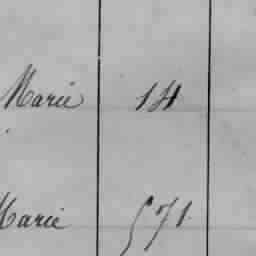 Marie 14
Marie 571